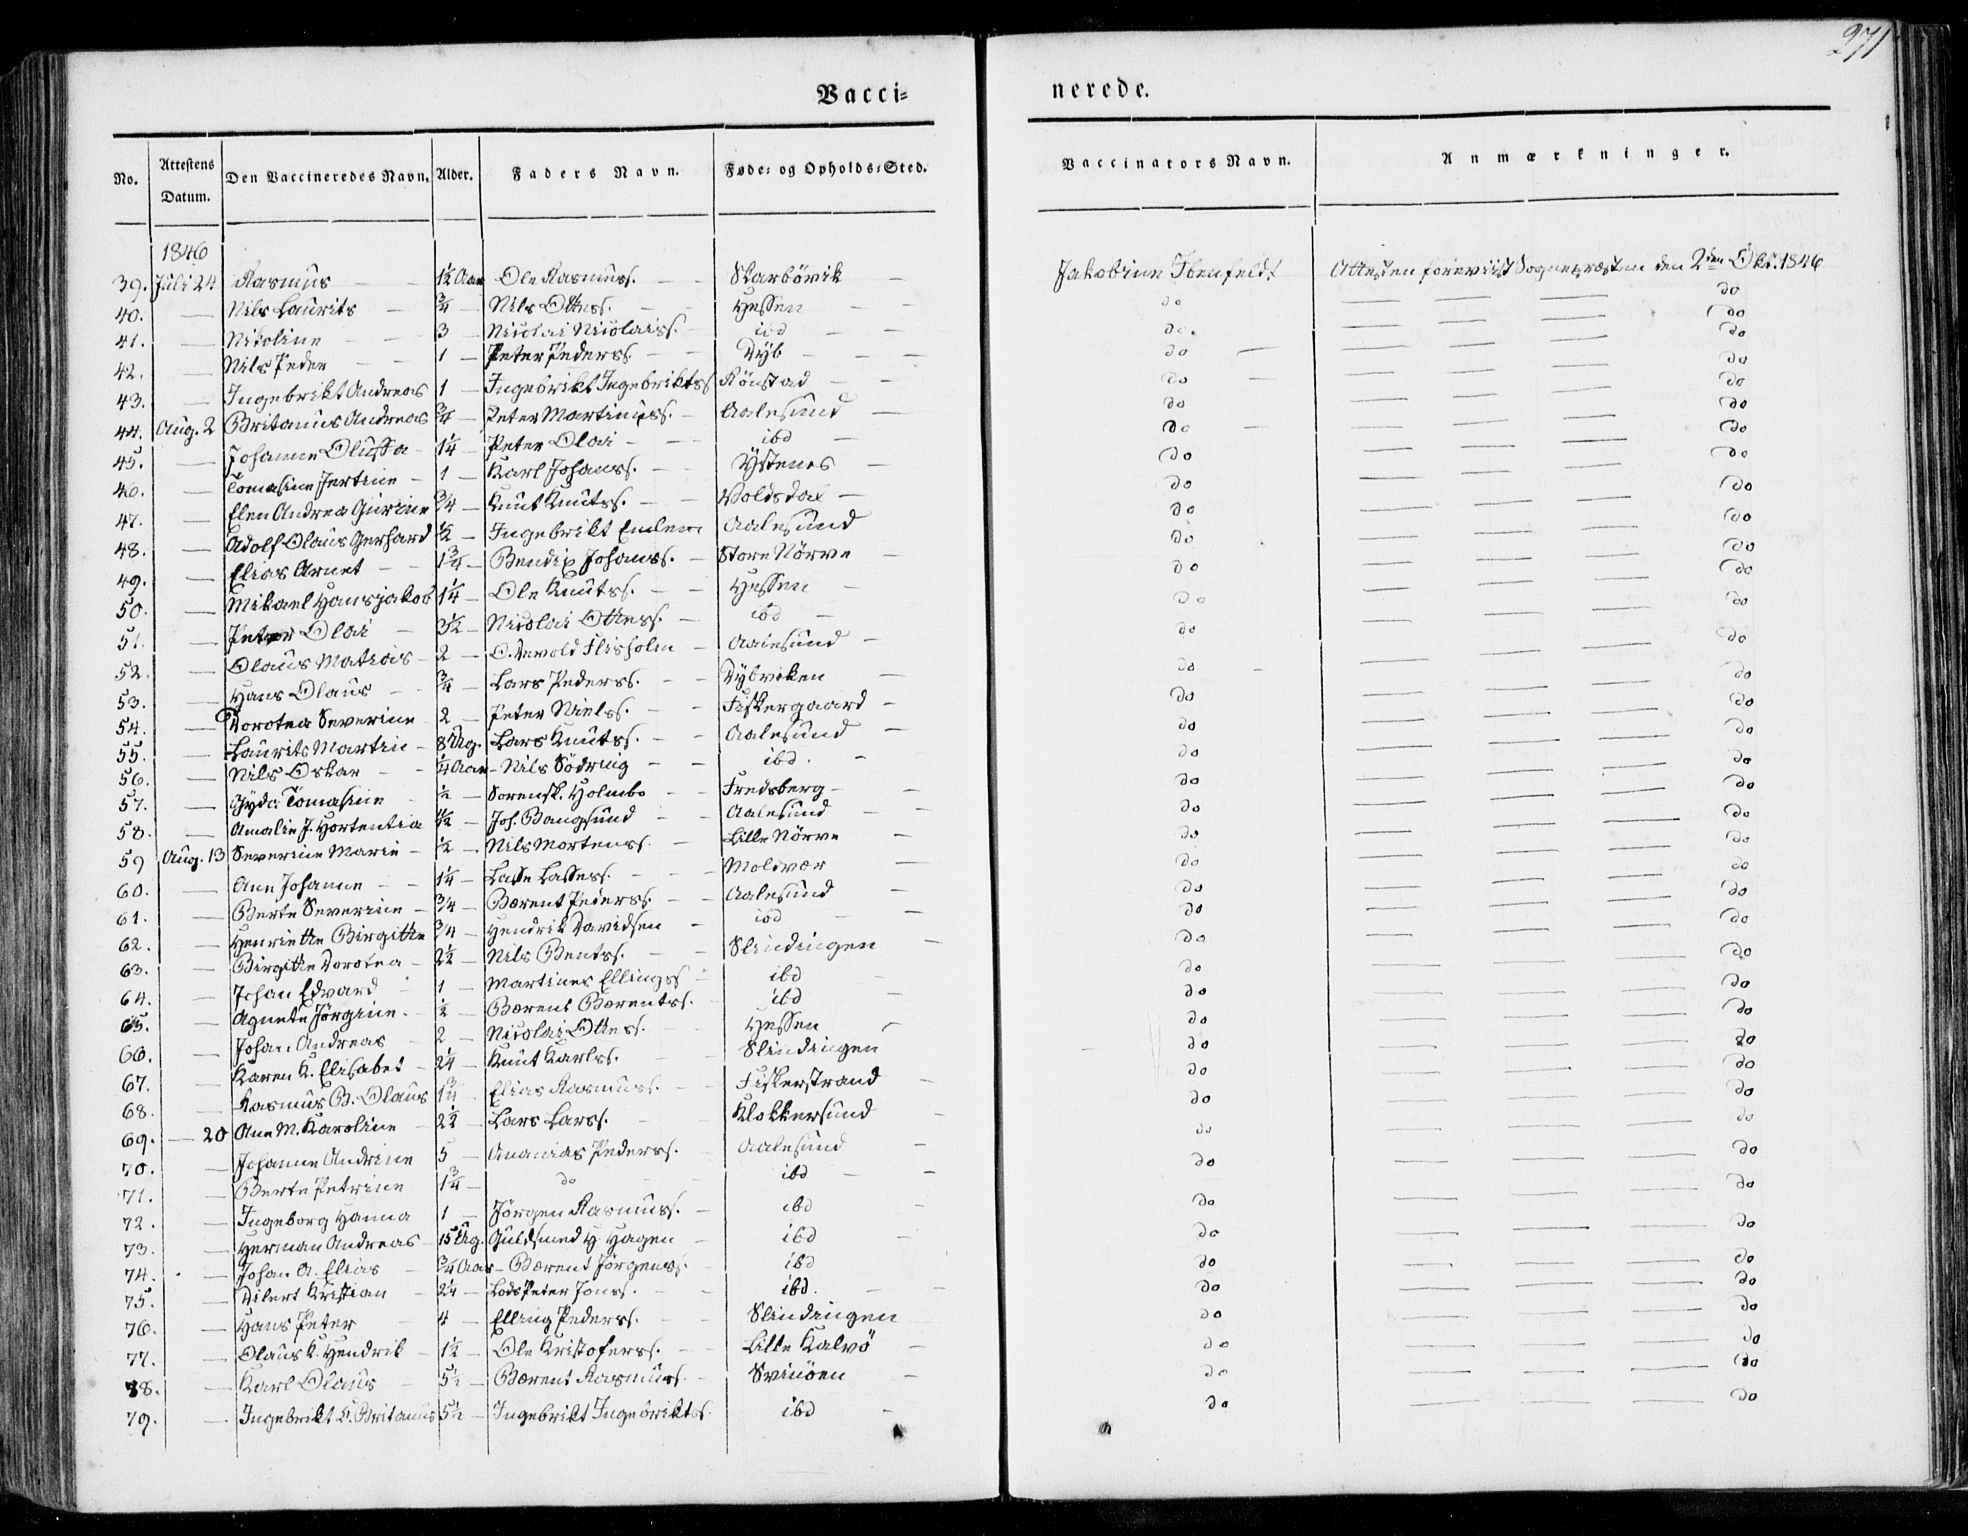 271
Vacci= nerede.
No. Attestens Datum. Den Vaccineredes Navn. Alder. Faders Navn. Føde= og Opholds=Sted. Vaccinators Navn. Anmærkninger.
1846
39. Juli 24 Rasmus — 1½ Aar Ole Rasmuss. Skarbövik — Jakobine Ibenfeldt Attesten foreviist Sognepræsten den 2den Okt. 1846
40. — Nils Laurits — ¾ — Nils Ottess. — Hessen — do — — — do
41. — Nikoline — 3 — Nicolai Nicolaiss. — ibd — do. — — — do
42. — Nils Peder — 1 — Peter Pederss. — Dyb — do — — — do
43. — Ingebrikt Andreas 1 — Ingebrikt Ingebriktss. Rönstad — do — — — do
44. Aug. 2 Britanus Andreas ¾ — Peter Martinuss. — Aalesund — do — — — do
45. — Johanne Olussa — 1¼ — Peter Olai — ibd — do — — — do
46. — Tomasine Jertine — 1 — Karl Johanss. — Ystenes — do — — — do
47. — Elen Andrea Gurine ¾ — Knut Knutss. — Voldsdal — do — — — do
48. — Adolf Olaus Gerhard ½ — Ingebrikt Emlem Aalesund do — — — do
49. — Elias Arnet — 1¾ — Bendix Johanss. — Store Nörve — do — — — do
50. — Mikael Hansjakob 1¼ — Ole Knutss. — Hessen — do — — — do
51. — Peter Olai — 3½ — Nicolai Ottess. — ibd — do — — — do
52. — Olaus Matias — 2 — O. Devold Flisholm — Aalesund — do — — — do
53. — Hans Olaus — ¾ — Lars Pederss. — Dybviken — do — — — do
54. — Dorotea Severine 2 — Peter Nielss. — Fiskergaard — do — — — do
55. — Laurits Martin — 8 Ug. Lars Knutss. — Aalesund — do — — — do
56. — Nils Oskar — ¼ Aar — Nils Södring — ibd. — do — — — do
57. — Gyda Tomasine ½ — Sorensk. Holmbo — Fredsberg — do — — — do
58. — Amalie J. Hortentia ½ — Joh. Bangsund — Aalesund — do — — — do
59 Aug. 13 Severine Marie — ½ — Nils Mortenss. — Lille Nörve — do — — — do
60. — Ane Johanne — 1¼ — Lasse Lassess. — Moldvær — do — — — do
61. — Berte Severine — ¾ — Bærent Pederss. — Aalesund — do — — — do
62. — Henriette Birgitte ¾ — Hendrik Davidsen — ibd — do — — — do
63. — Birgitte Dorotea — 2½ — Nils Bentss. — Slindingen — do — — — do
64. — Johan Edvard 1 — Martines Ellingss — ibd — do — — — do
65. — Agnete Jörgine. ½ — Bærent Bærentss. ibd — do — — — do
66. — Johan Andreas — 2 — Nicolai Ottess. — Hessen — do — — — do
67. — Karen K. Elisabet — 2¼ — Knut Karlss. — Slindingen do — — — do
68. — Rasmus B. Olaus 1¾ — Elias Rasmuss. — Fiskerstrand — do — — — do
69. — 20 Ane M. Karoline — 2½ — Lars Larss. — Klokkersund — do — — — do
70. — Johanne Andrine 5 — Ananias Pederss. — Aalesund — do — — — do
71. — Berte Petrine 1¾ — do — ibd — do — — — do
72. — Ingeborg Hanna 1 — Jörgen Rasmuss. — ibd do — — — do
73. — Herman Andreas — 15 Ug. Guldsmed H. Hagen — ibd — do — — — do
74. — Johan A. Elias — ¾ Aar — Bærent Jörgenss. ibd do — — — do
75. — Eilert Kristian — 2¼ — Lods Peter Jonss. — ibd. — do — — — do
76. — Hans Peter — 4 — Elling Pederss. — Slindingen do — — — do
77. — Olaus K. Hendrik — 1½ — Ole Kristoferss. — Lille Kalvö — do — — — do
78. — Karl Olaus — 5½ — Bærent Rasmuss. — Svinöen — do — — — do
79. — Ingebrikt E. Britanus 5½ — Ingebrikt Ingebriktss. ibd — do — — — do